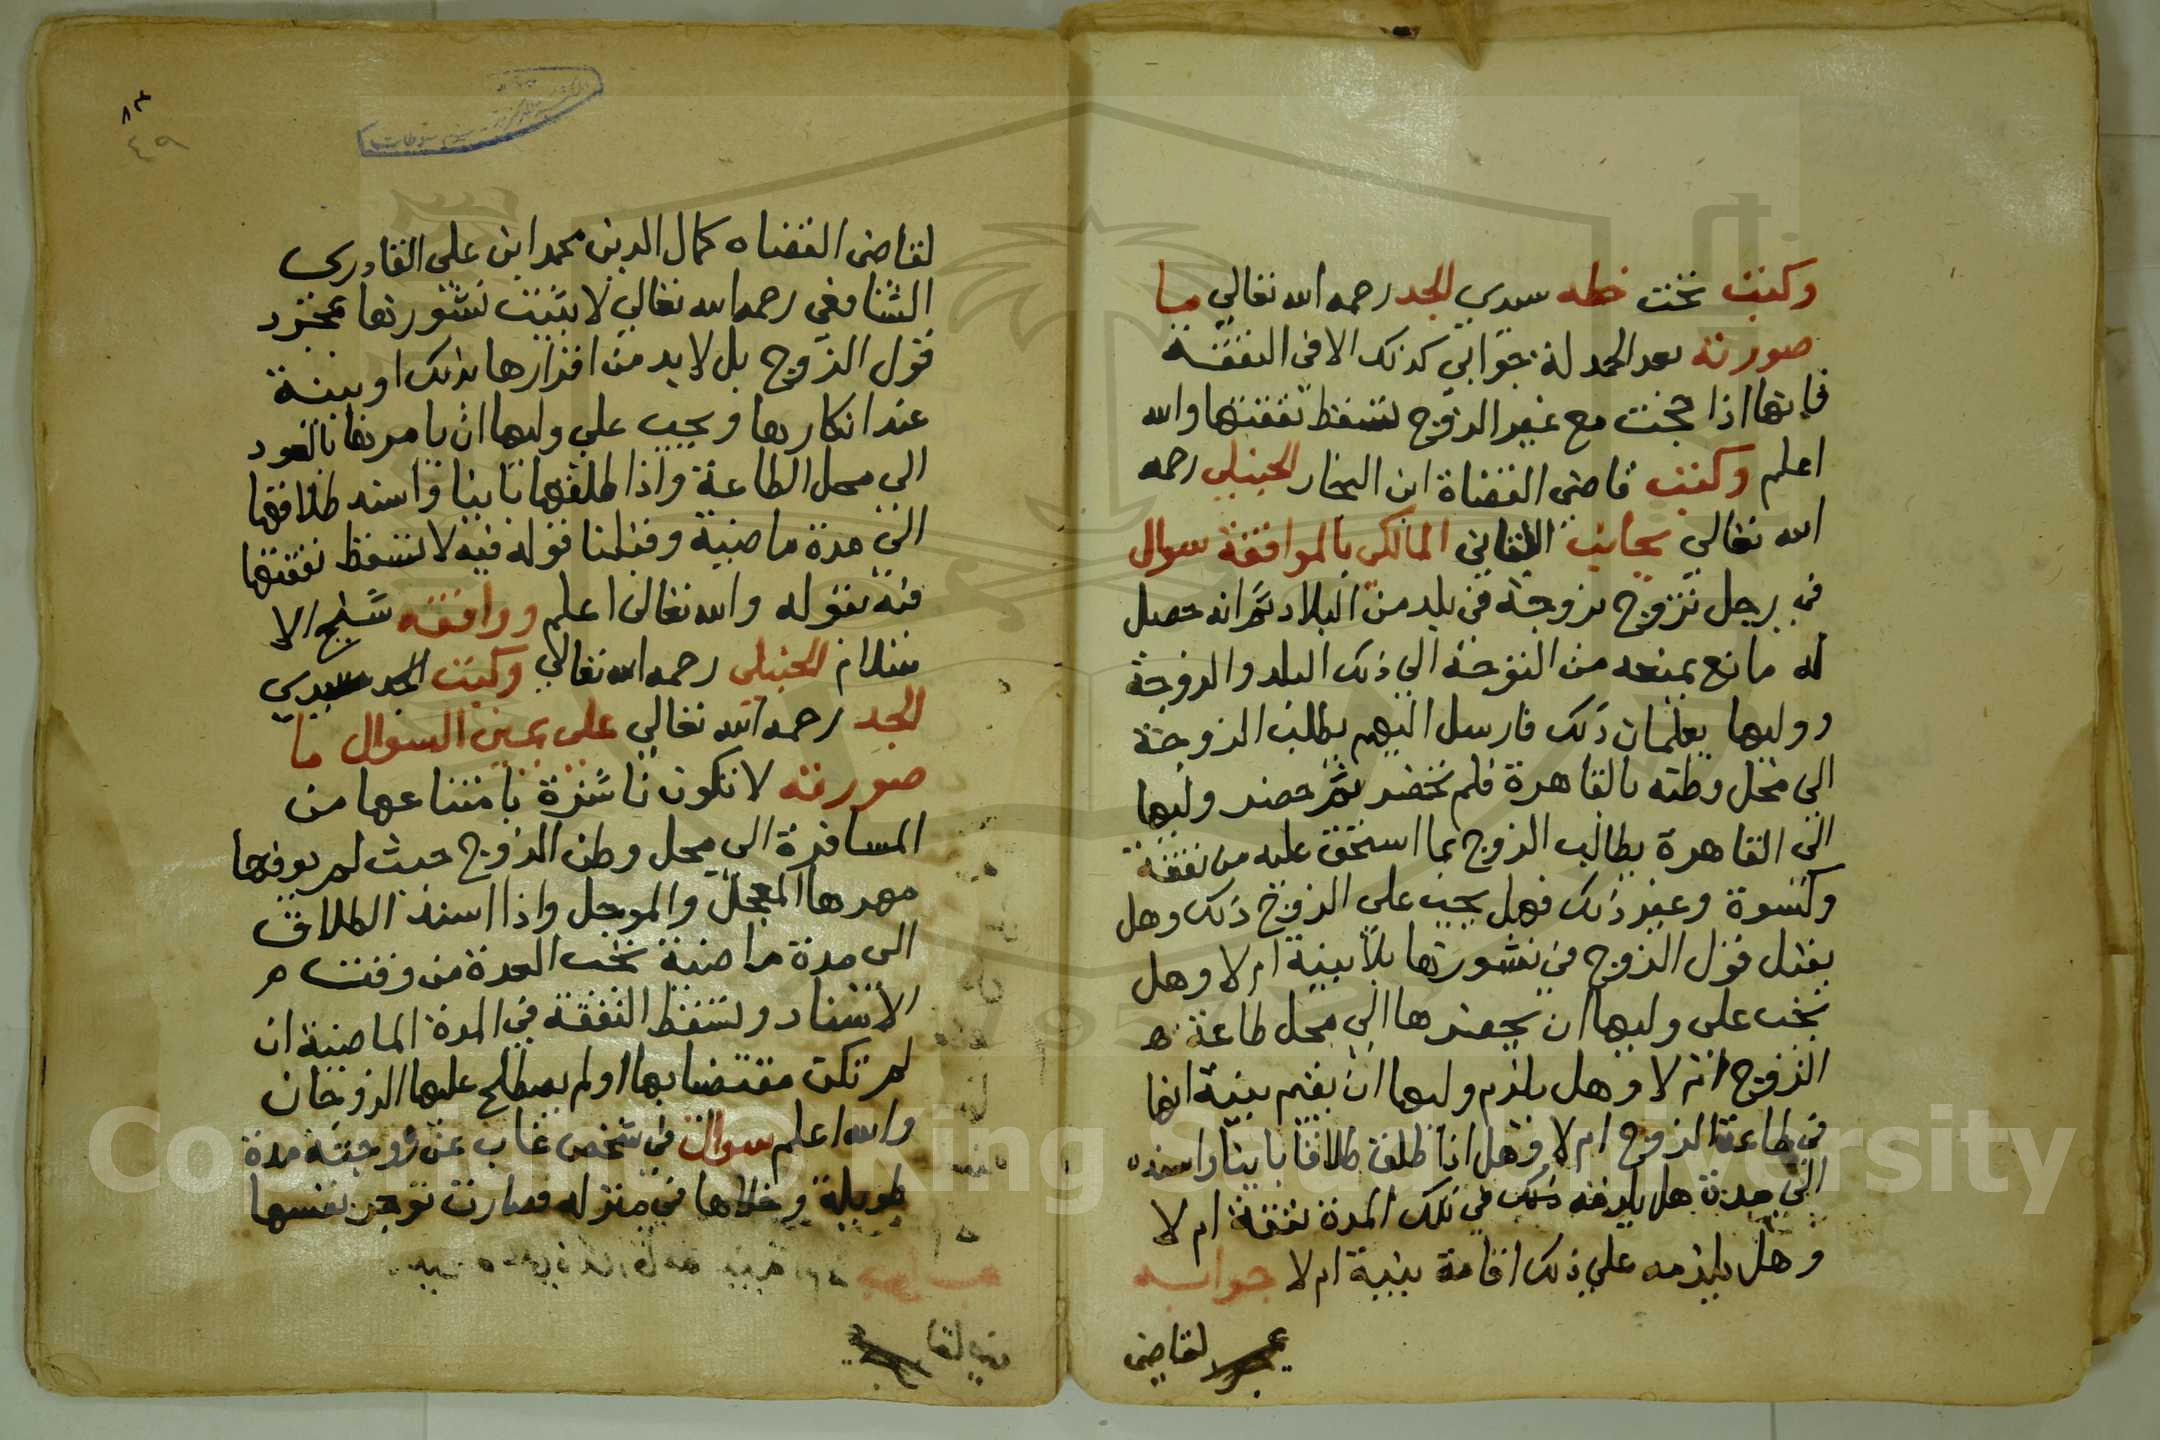 وكتب تحت خطه سيدي الجد رحمه الله تعالي ما
صورته بعد الحمد لة جوابي كذلك الا في النفقة
فانها اذا حجت مع غير الزوج تسقط نفقتها والله
اعلم وكتب قاضي القضاة ابن النجار الحنبلي رحمه
الله تعالي بجانب اللقاني المالكي بالموافقة سوال
في رجل تزوج بزوجة في بلد من البلاد ثم انه حصل
له مانع يمنعه من التوجه الي ذلك البلد والزوجة
ووليها يعلمان ذلك فارسل اليهم يطلب الزوجة
الي محل وطنه بالقاهرة فلم تحضر ثم حضر وليها
الي القاهرة يطالب الزوج بما استحق عليه من نفقة
وكسوة وغير ذلك فهل يجب علي الزوج ذلك وهل
يقبل قول الزوج في نشوزها بلا بينة ام لا وهل
يجب علي وليها ان يحضرها الي محل طاعة
الزوج ام لا وهل يلزم وليها ان يقيم بينة انها
في طاعة الزوج ام لا وهل اذا طلق طلاقا باينا واسنده
الي مدة هل يلزمه ذلك في تلك المدة نفقة ام لا
وهل يلزمه علي ذلك اقامة بينة ام لا جوابه
لقاضي
لقاضي القضاه كمال الدين محمد ابن علي القادري
الشافعي رحمه الله تعالي لا يثبت نشوزها بمجرد
قول الزوج بل لا بد من اقرارها بذلك او بينة
عند انكارها ويجب علي وليها ان يامرها بالعود
الي محل الطاعة واذا طلقها باينا واسند طلاقها
الي مدة ماضية وقبلنا قوله فيه لا تسقط نفقتها
فيه بقوله والله تعالي اعلم ووافقه شيخ الا
سلام الحنبلي رحمه الله تعالي وكتب سيدي
الجد رحمه الله تعالي علي يمين السوال ما
صورته لا تكون ناشزة بامتناعها من
المسافرة الي محل وطن الزوج حيث لم يوفها
مهرها المعجل والموجل واذا اسند الطلاق
الي مدة ماضية تجب العدة من وقت
الاسناد وتسقط النفقة في المدة الماضية ان
لم تكن مقتضيا بها او لم يصطلح عليها الزوجان
والله اعلم سوال في شخص غاب عن زوجته مدة
طويلة وخلاها في منزله فصارت توجر نفسها
٨٣
٤٩